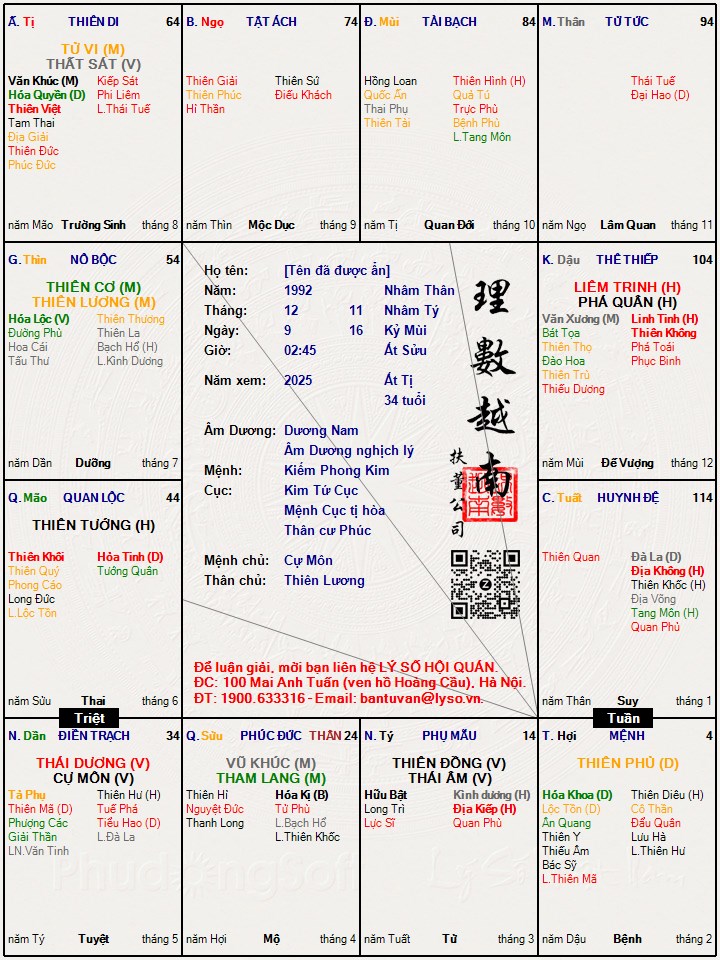 Ấ. Tị THIÊN DI 64
TỬ VI (M)
THẤT SÁT (V)
Văn Khúc (M) Kiếp Sát
Hóa Quyền (D) Phi Liêm
Thiên Việt L.Thái Tuế
Tam Thai
Địa Giải
Thiên Đức
Phúc Đức
năm Mão Trường Sinh tháng 8
B. Ngọ TẬT ÁCH 74
Thiên Giải Thiên Sứ
Thiên Phúc Điếu Khách
Hỉ Thần
năm Thìn Mộc Dục tháng 9
Đ. Mùi TÀI BẠCH 84
Hồng Loan Thiên Hình (H)
Quốc Ấn Quả Tú
Thai Phụ Trực Phù
Thiên Tài Bệnh Phù
L.Tang Môn
năm Tị Quan Đới tháng 10
M. Thân TỬ TỨC 94
Thái Tuế
Đại Hao (D)
năm Ngọ Lâm Quan tháng 11
G. Thìn NÔ BỘC 54
THIÊN CƠ (M)
THIÊN LƯƠNG (M)
Hóa Lộc (V) Thiên Thương
Đường Phù Thiên La
Hoa Cái Bạch Hổ (H)
Tấu Thư L.Kình Dương
năm Dần Dưỡng tháng 7
Họ tên: [Tên đã được ẩn]
Năm: 1992 Nhâm Thân
Tháng: 12 11 Nhâm Tý
Ngày: 9 16 Kỷ Mùi
Giờ: 02:45 Ất Sửu
Năm xem: 2025 Ất Tị
34 tuổi
Âm Dương: Dương Nam
Âm Dương nghịch lý
Mệnh: Kiếm Phong Kim
Cục: Kim Tứ Cục
Mệnh Cục tị hòa
Thân cư Phúc
Mệnh chủ: Cự Môn
Thân chủ: Thiên Lương
理數越南
扶董公司
Để luận giải, mời bạn liên hệ LÝ SỐ HỘI QUÁN.
ĐC: 100 Mai Anh Tuấn (ven hồ Hoàng Cầu), Hà Nội.
ĐT: 1900.633316 - Email: bantuvan@lyso.vn.
K. Dậu THÊ THIẾP 104
LIÊM TRINH (H)
PHÁ QUÂN (H)
Văn Xương (M) Linh Tinh (H)
Bát Tọa Thiên Không
Thiên Thọ Phá Toái
Đào Hoa Phục Binh
Thiên Trù
Thiếu Dương
năm Mùi Đế Vượng tháng 12
Q. Mão QUAN LỘC 44
THIÊN TƯỚNG (H)
Thiên Khôi Hỏa Tinh (D)
Thiên Quý Tướng Quân
Phong Cáo
Long Đức
L.Lộc Tồn
năm Sửu Thai tháng 6
C. Tuất HUYNH ĐỆ 114
Thiên Quan Đà La (D)
Địa Không (H)
Thiên Khốc (H)
Địa Võng
Tang Môn (H)
Quan Phủ
năm Thân Suy tháng 1
Triệt
Tuần
N. Dần ĐIỀN TRẠCH 34
THÁI DƯƠNG (V)
CỰ MÔN (V)
Tả Phụ Thiên Hư (H)
Thiên Mã (D) Tuế Phá
Phượng Các Tiểu Hao (D)
Giải Thần L.Đà La
LN.Văn Tinh
năm Tý Tuyệt tháng 5
Q. Sửu PHÚC ĐỨC THÂN 24
VŨ KHÚC (M)
THAM LANG (M)
Thiên Hỉ Hóa Kị (B)
Nguyệt Đức Tử Phù
Thanh Long L.Bạch Hổ
L.Thiên Khốc
năm Hợi Mộ tháng 4
N. Tý PHỤ MẪU 14
THIÊN ĐỒNG (V)
THÁI ÂM (V)
Hữu Bật Kình dương (H)
Long Trì Địa Kiếp (H)
Lực Sĩ Quan Phù
năm Tuất Tử tháng 3
T. Hợi MỆNH 4
THIÊN PHỦ (D)
Hóa Khoa (D) Thiên Diêu (H)
Lộc Tồn (D) Cô Thần
Ân Quang Đẩu Quân
Thiên Y Lưu Hà
Thiếu Âm L.Thiên Hư
Bác Sỹ
L.Thiên Mã
năm Dậu Bệnh tháng 2